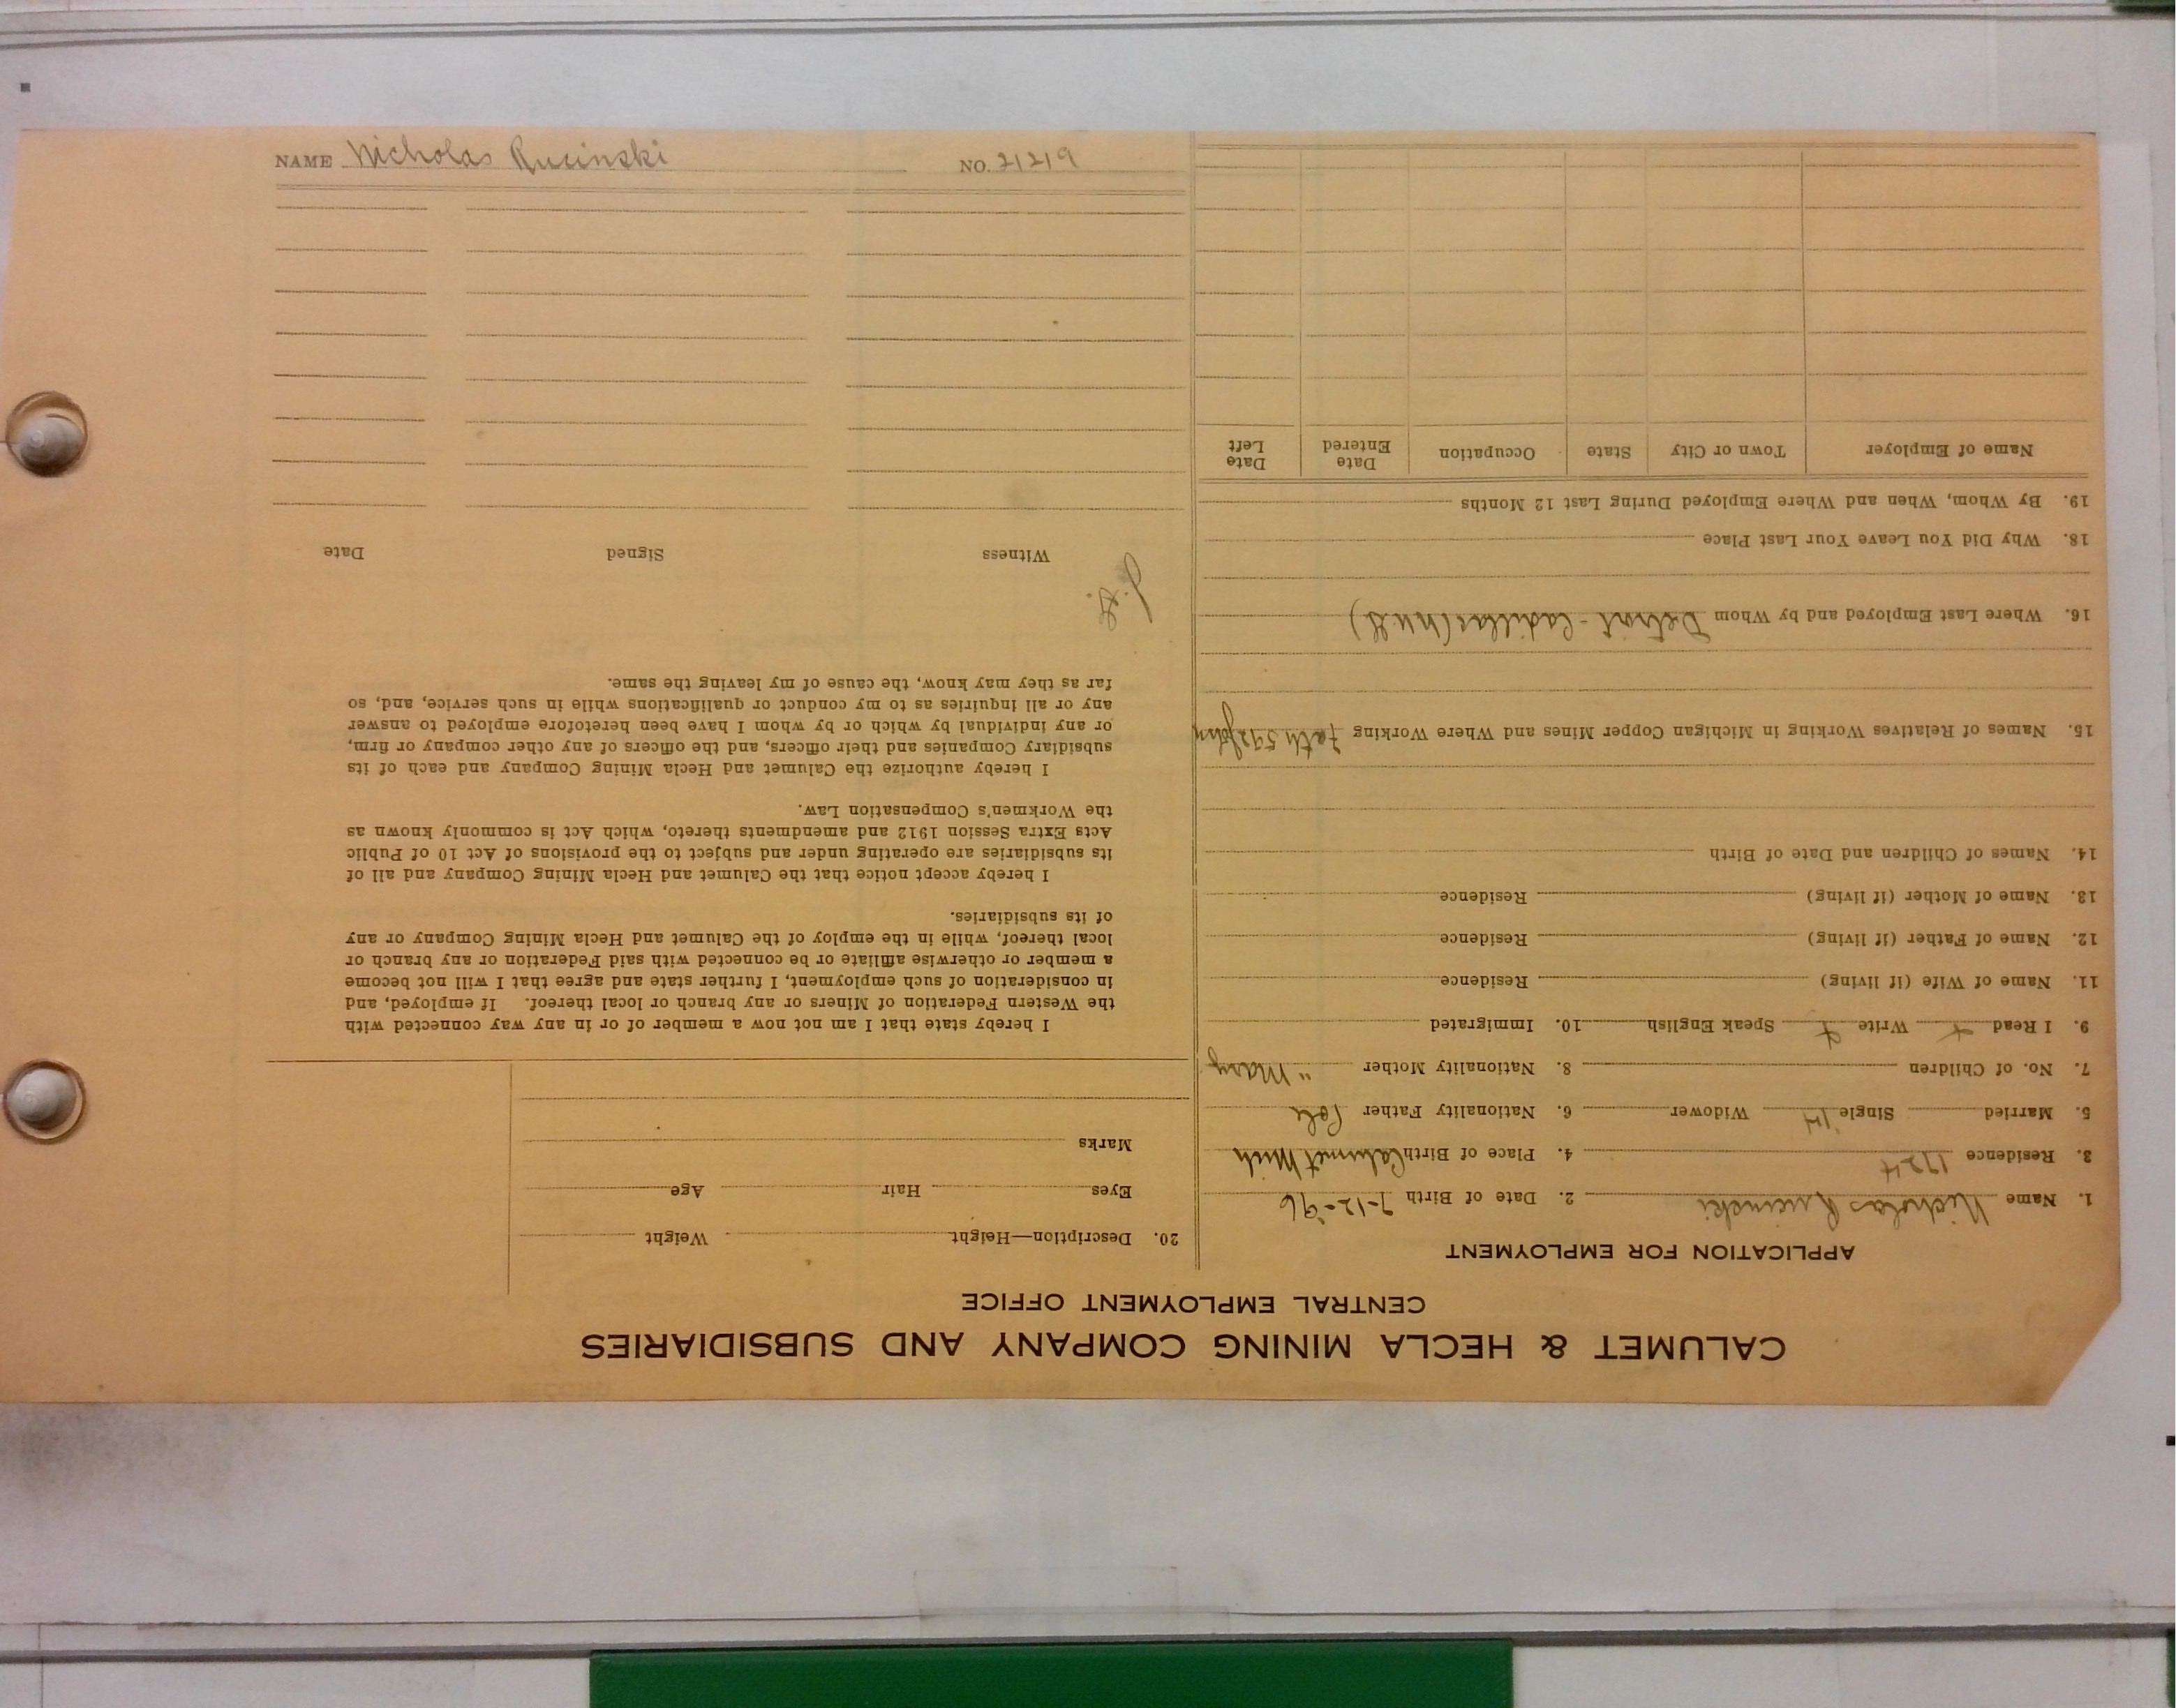 CALUMET & HECLA MINING COMPANY AND SUBSIDIARIES
CENTRAL EMPLOYMENT OFFICE
APPLICATION FOR EMPLOYMENT
1. Name Nicholas Rucinski 2. Date of Birth 7-12-96
3. Residence 1724 4. Place of Birth Calumet Mich
5. Married Single Widower 6. Nationality Father Pole
7. No. of Children 8. Nationality Mother " Mary
9. I Read Write Speak English 10. Immigrated
11. Name of Wife (if living) Residence
12. Name of Father (if living) Residence
13. Name of Mother (if living) Residence
14. Names of Children and Date of Birth
15. Names of Relatives Working in Michigan Copper Mines and Where Working Fath 592 John
16. Where Last Employed and by Whom Detroit - Cadillac
18. Why Did You Leave Your Last Place
19. By Whom, When and Where Employed During Last 12 Months
Name of Employer Town or City State Occupation Date Entered Date Left
20. Description—Height Weight
Eyes Hair Age
Marks
I hereby state that I am not now a member of or in any way connected with
the Western Federation of Miners or any branch or local thereof. If employed, and
in consideration of such employment, I further state and agree that I will not become
a member or otherwise affiliate or be connected with said Federation or any branch or
local thereof, while in the employ of the Calumet and Hecla Mining Company or any
of its subsidiaries.
I hereby accept notice that the Calumet and Hecla Mining Company and all of
its subsidiaries are operating under and subject to the provisions of Act 10 of Public
Acts Extra Session 1912 and amendments thereto, which Act is commonly known as
the Workmen's Compensation Law.
I hereby authorize the Calumet and Hecla Mining Company and each of its
subsidiary Companies and their officers, and the officers of any other company or firm,
or any individual by which or by whom I have been heretofore employed to answer
any or all inquiries as to my conduct or qualifications while in such service, and, so
far as they may know, the cause of my leaving the same.
Witness Signed Date
NAME Nicholas Rucinski NO. 21219